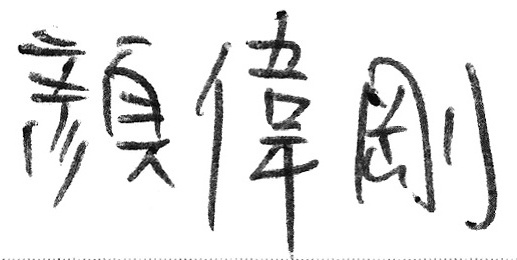 顏偉剛